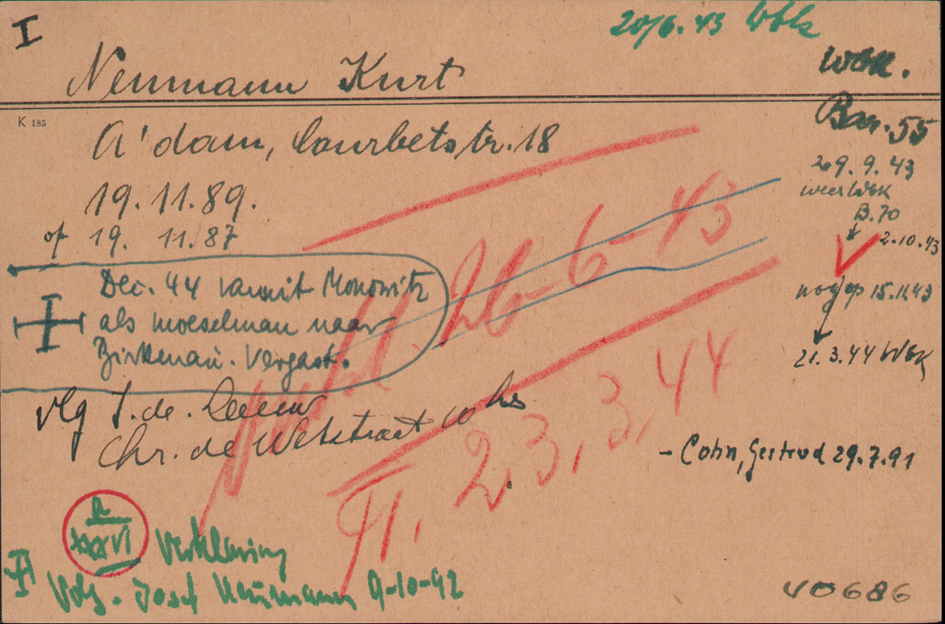 I
20/6.43 Wbk
Neumann Kurt
Wbk.
K 185
Bar. 55
A'dam, Courbetstr. 18
29.9.43
19.11.89.
weer Wbk
B.70
of 19. 11/87
2.10.43
26-6-43
Dec. 44 vanuit Monowitz
als moeselman naar
Birkenau. Vergast.
nog op 15.11.43
21.3.44 Wbk
vlg J. de Leeuw
Chr. de Wetstraat 10 hs
II. 23,3,44
- Cohn, Gertrud 29.7.91
XXXVI Verklaring
Volg. Josef Neumann 9-10-42
40686